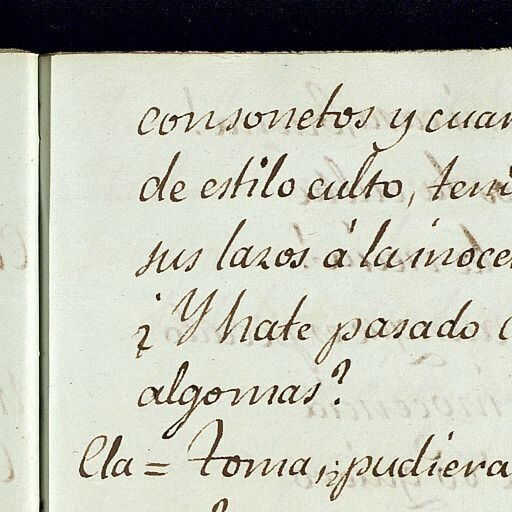 con sonetos y cuan
de estilo culto, ten
sus lazos á la inocen
¿Y hate pasado
algo mas?
Cla = Toma, ¿pudiera